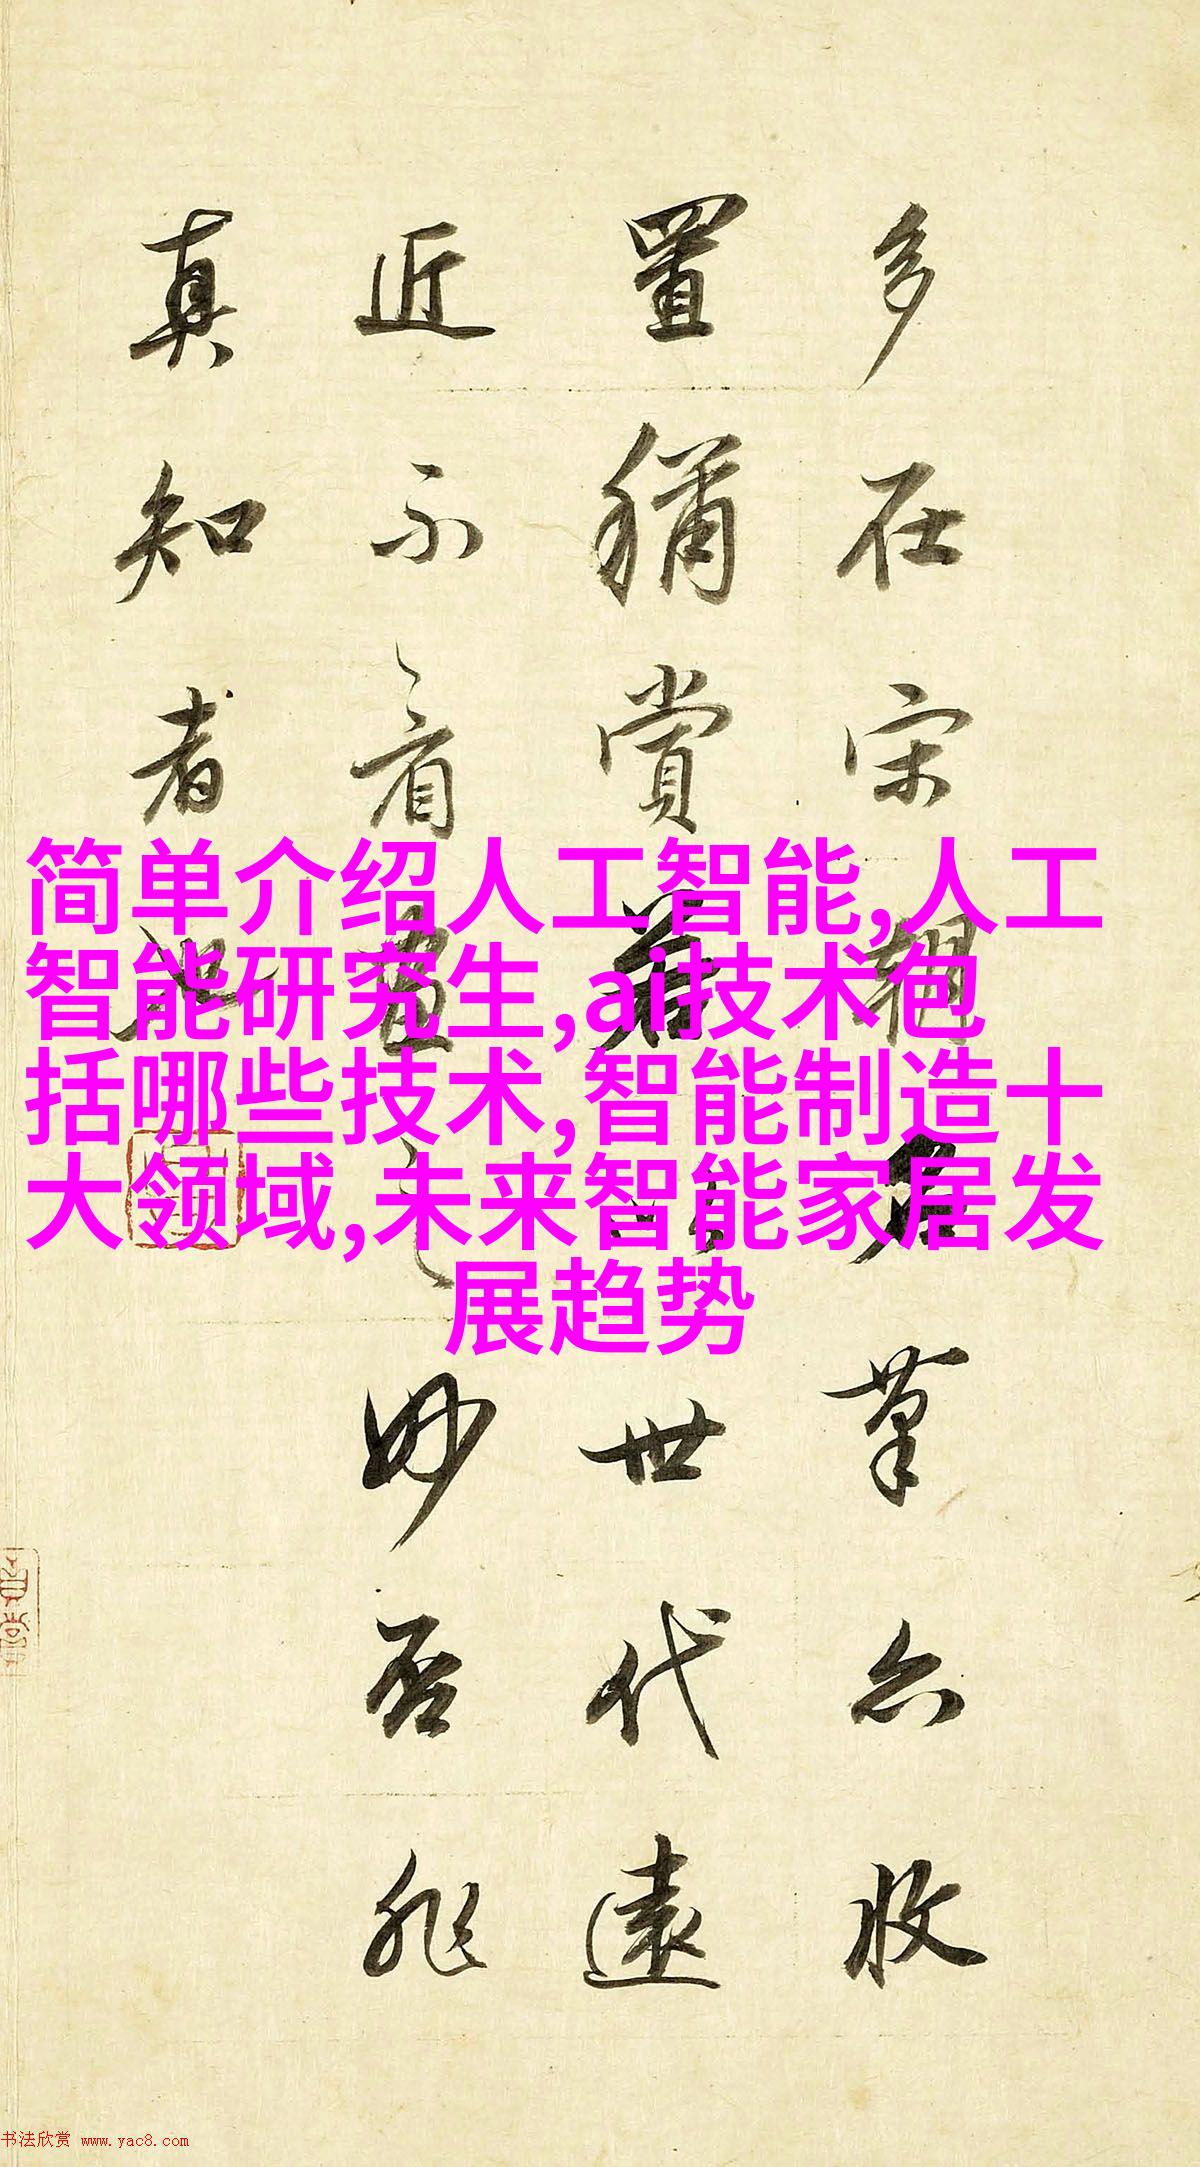 多在宋朝名筆亦收
置猶賞若以世代遠
近不看畫之妙否非
真知者也
简单介绍人工智能,人工
智能研究生,ai技术包
括哪些技术,智能制造十
大领域,未来智能家居发
展趋势
书法欣赏 www.yac8.com